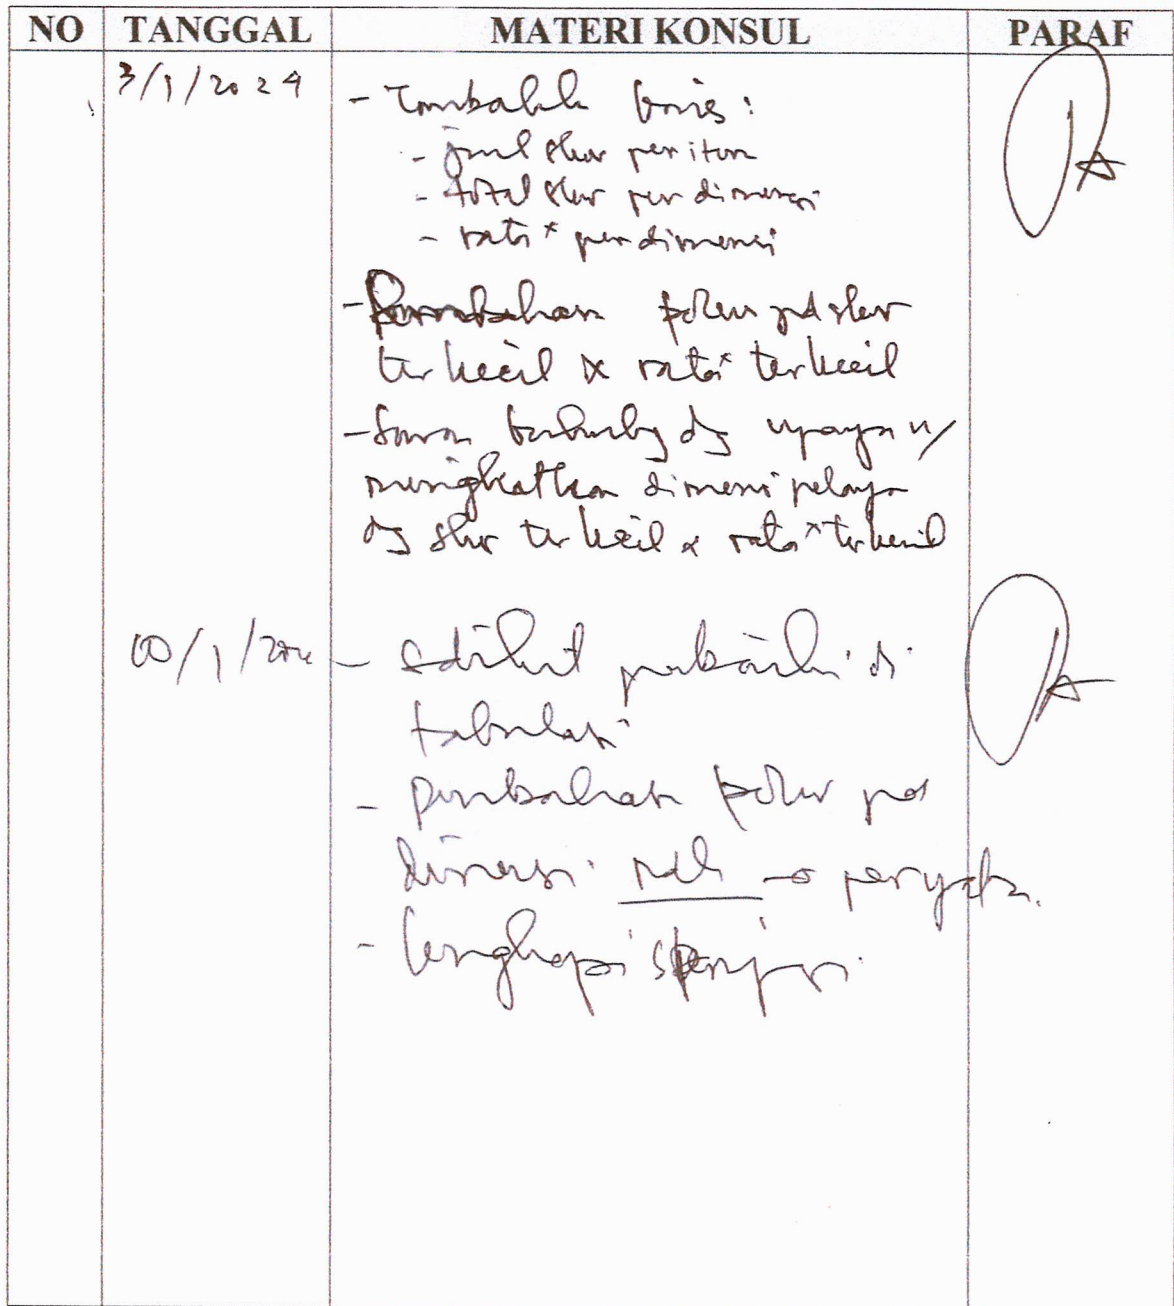 NO TANGGAL MATERI KONSUL PARAF
3/1/2024 - Tambahkh baris :
- juml skor per item
- total skor per dimensi
- rata² per dimensi
- Pembahasan fokus pd skor
terkecil & rata² terkecil
- Saran berhubg dg upaya u/
meningkatkan dimensi pelayan
dg skor terkecil & rata² terkecil
/1/ - Sedikit perbaiki di
tabulasi
- pembahasan fokus pd
dimensi →
- lengkapi